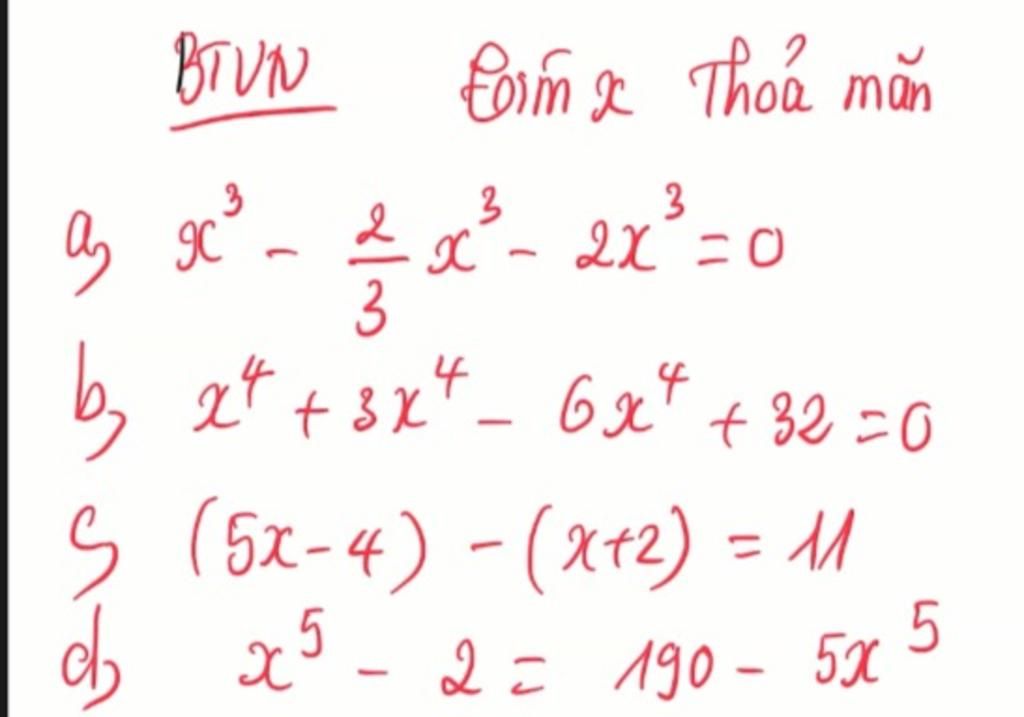 BTVN Tìm x Thoả mãn
a, x³ - 2/3 x³ - 2x³ = 0
b, x⁴ + 3x⁴ - 6x⁴ + 32 = 0
c, (5x-4) - (x+2) = 11
d, x⁵ - 2 = 190 - 5x⁵